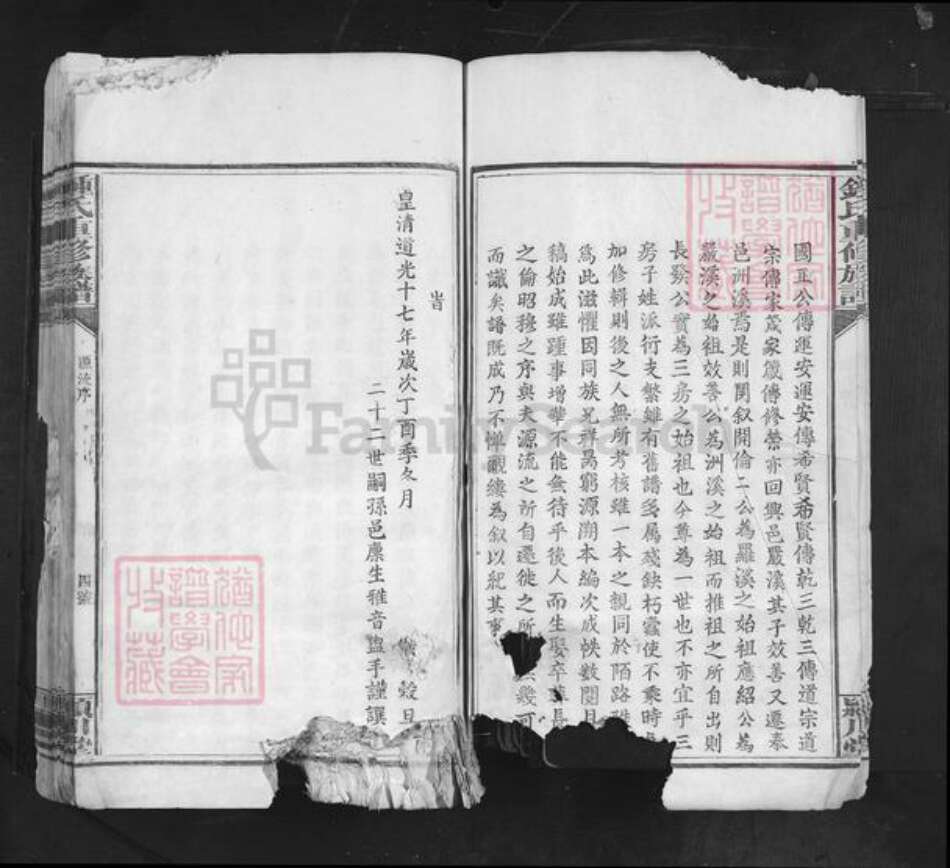 國正公傳運安運安傳希賢希賢傳乾三乾三傳道宗道
宗傳家箴家箴傳修榮亦回興邑嚴溪其子效善又遷泰
邑洲溪焉是則開叙開倫二公為羅溪之始祖應紹公為
嚴溪之始祖效善公為洲溪之始祖而推祖之所自出則
長發公實為三房之始祖也今尊為一世也不亦宜乎三
房子姓派衍支繁雖有舊譜多屬殘鈌朽蠹使不乘時
加修輯則後之人無所考核雖一本之親同於陌路
為此滋懼因同族兄祥萬窮源溯本編次成帙數閱月
稿始成雖踵事增華不能無待乎後人而生娶卒葬
之倫昭穆之序與夫源流之所自遷徙之所 幾可
而識矣譜既成乃不憚覼縷為叙以紀其事
旹
皇清道光十七年歲次丁酉季冬月 穀旦
二十二世嗣孫邑廩生雅音盥手謹譔
鍾氏重修族譜
源流序
四號
潁川堂
FamilySearch
譜學會
收藏